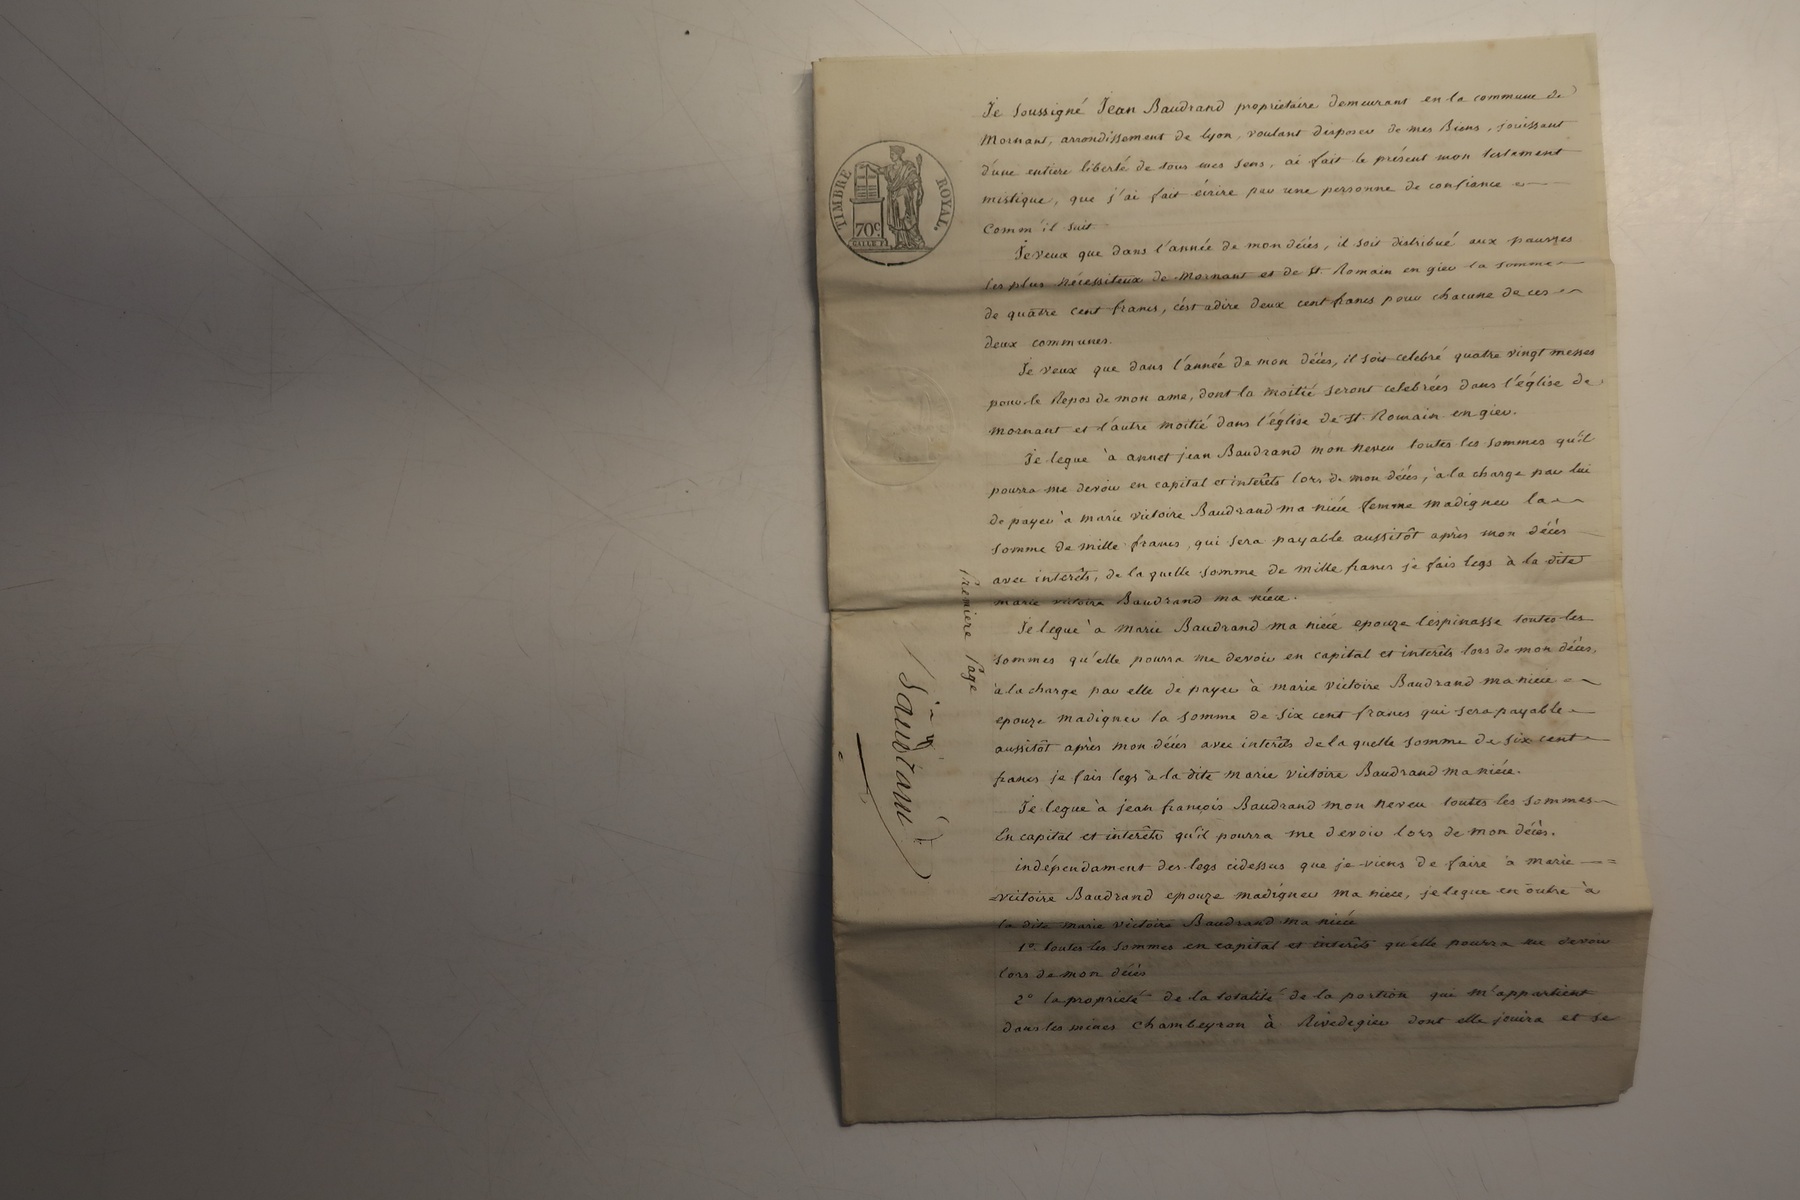 TIMBRE ROYAL.
70c
Je soussigné Jean Baudrand propriétaire demeurant en la commune de
Mornant, arrondissement de lyon, voulant disposer de mes Biens, jouissant
d'une entiere liberté de tous mes sens, ai fait le présent mon testament
mistique, que j'ai fait écrire par une personne de confiance
Comm'il suit
Je veux que dans l'année de mon décès, il soit distribué aux pauvres
les plus nécessiteux de Mornant et de St. Romain en gier la somme
de quatre cent francs, c'est adire deux cent francs pour chacune de ces
deux communes.
Je veux que dans l'année de mon décès, il soit celebré quatre vingt messes
pour le Repos de mon ame, dont la moitié seront celebrées dans l'église de
mornant et l'autre moitié dans l'église de St. Romain en gier.
Je legue à annet jean Baudrand mon neveu toutes les sommes qu'il
pourra me devoir en capital et interêts lors de mon décès, à la charge par lui
de payer à marie victoire Baudrand ma niéce femme madignier la
somme de mille francs, qui sera payable aussitôt après mon décès
avec interêts, de la quelle somme de mille francs je fais legs à la dite
marie victoire Baudrand ma niéce.
Je legue à marie Baudrand ma niéce epouze lespinasse toutes les
sommes qu'elle pourra me devoir en capital et interêts lors de mon décès,
à la charge par elle de payer à marie victoire Baudrand ma niéce
epouze madignier la somme de six cent francs qui sera payable
aussitôt après mon décès avec interêts de la quelle somme de six cent
francs je fais legs à la dite marie victoire Baudrand ma niéce.
Je legue à jean françois Baudrand mon neveu toutes les sommes
En capital et interêts qu'il pourra me devoir lors de mon décès.
indépendament des legs cidessus que je viens de faire à marie
victoire Baudrand epouze madignier ma niece, je legue en outre à
la dite marie victoire Baudrand ma niéce
1º toutes les sommes en capital et interêts qu'elle pourra me devoir
lors de mon décès
2º la proprieté de la totalité de la portion qui m'appartient
dans les mines chambeyron à Rivedegier dont elle jouira et se
Premiere Page